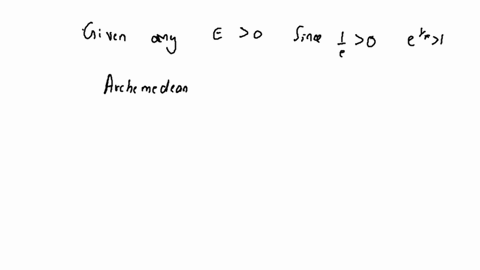 Given any ϵ > 0 Since 1/e > 0 e^{1/n} > 1
Archemedean